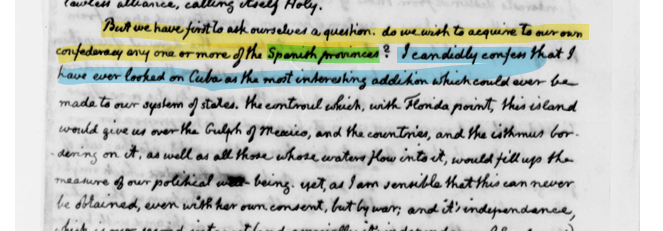 lawless alliance, calling itself Holy.
But we have first to ask ourselves a question. do we wish to acquire to our own
confederacy any one or more of the Spanish provinces? I candidly confess that I
have ever looked on Cuba as the most interesting addition which could ever be
made to our system of states. the controul which, with Florida point, this island
would give us over the Gulph of Mexico, and the countries, and the isthmus bor-
dering on it, as well as all those whose waters flow into it, would fill up the
measure of our political well-being. yet, as I am sensible that this can never
be obtained, even with her own consent, but by war; and it's independance,
which is our second interest